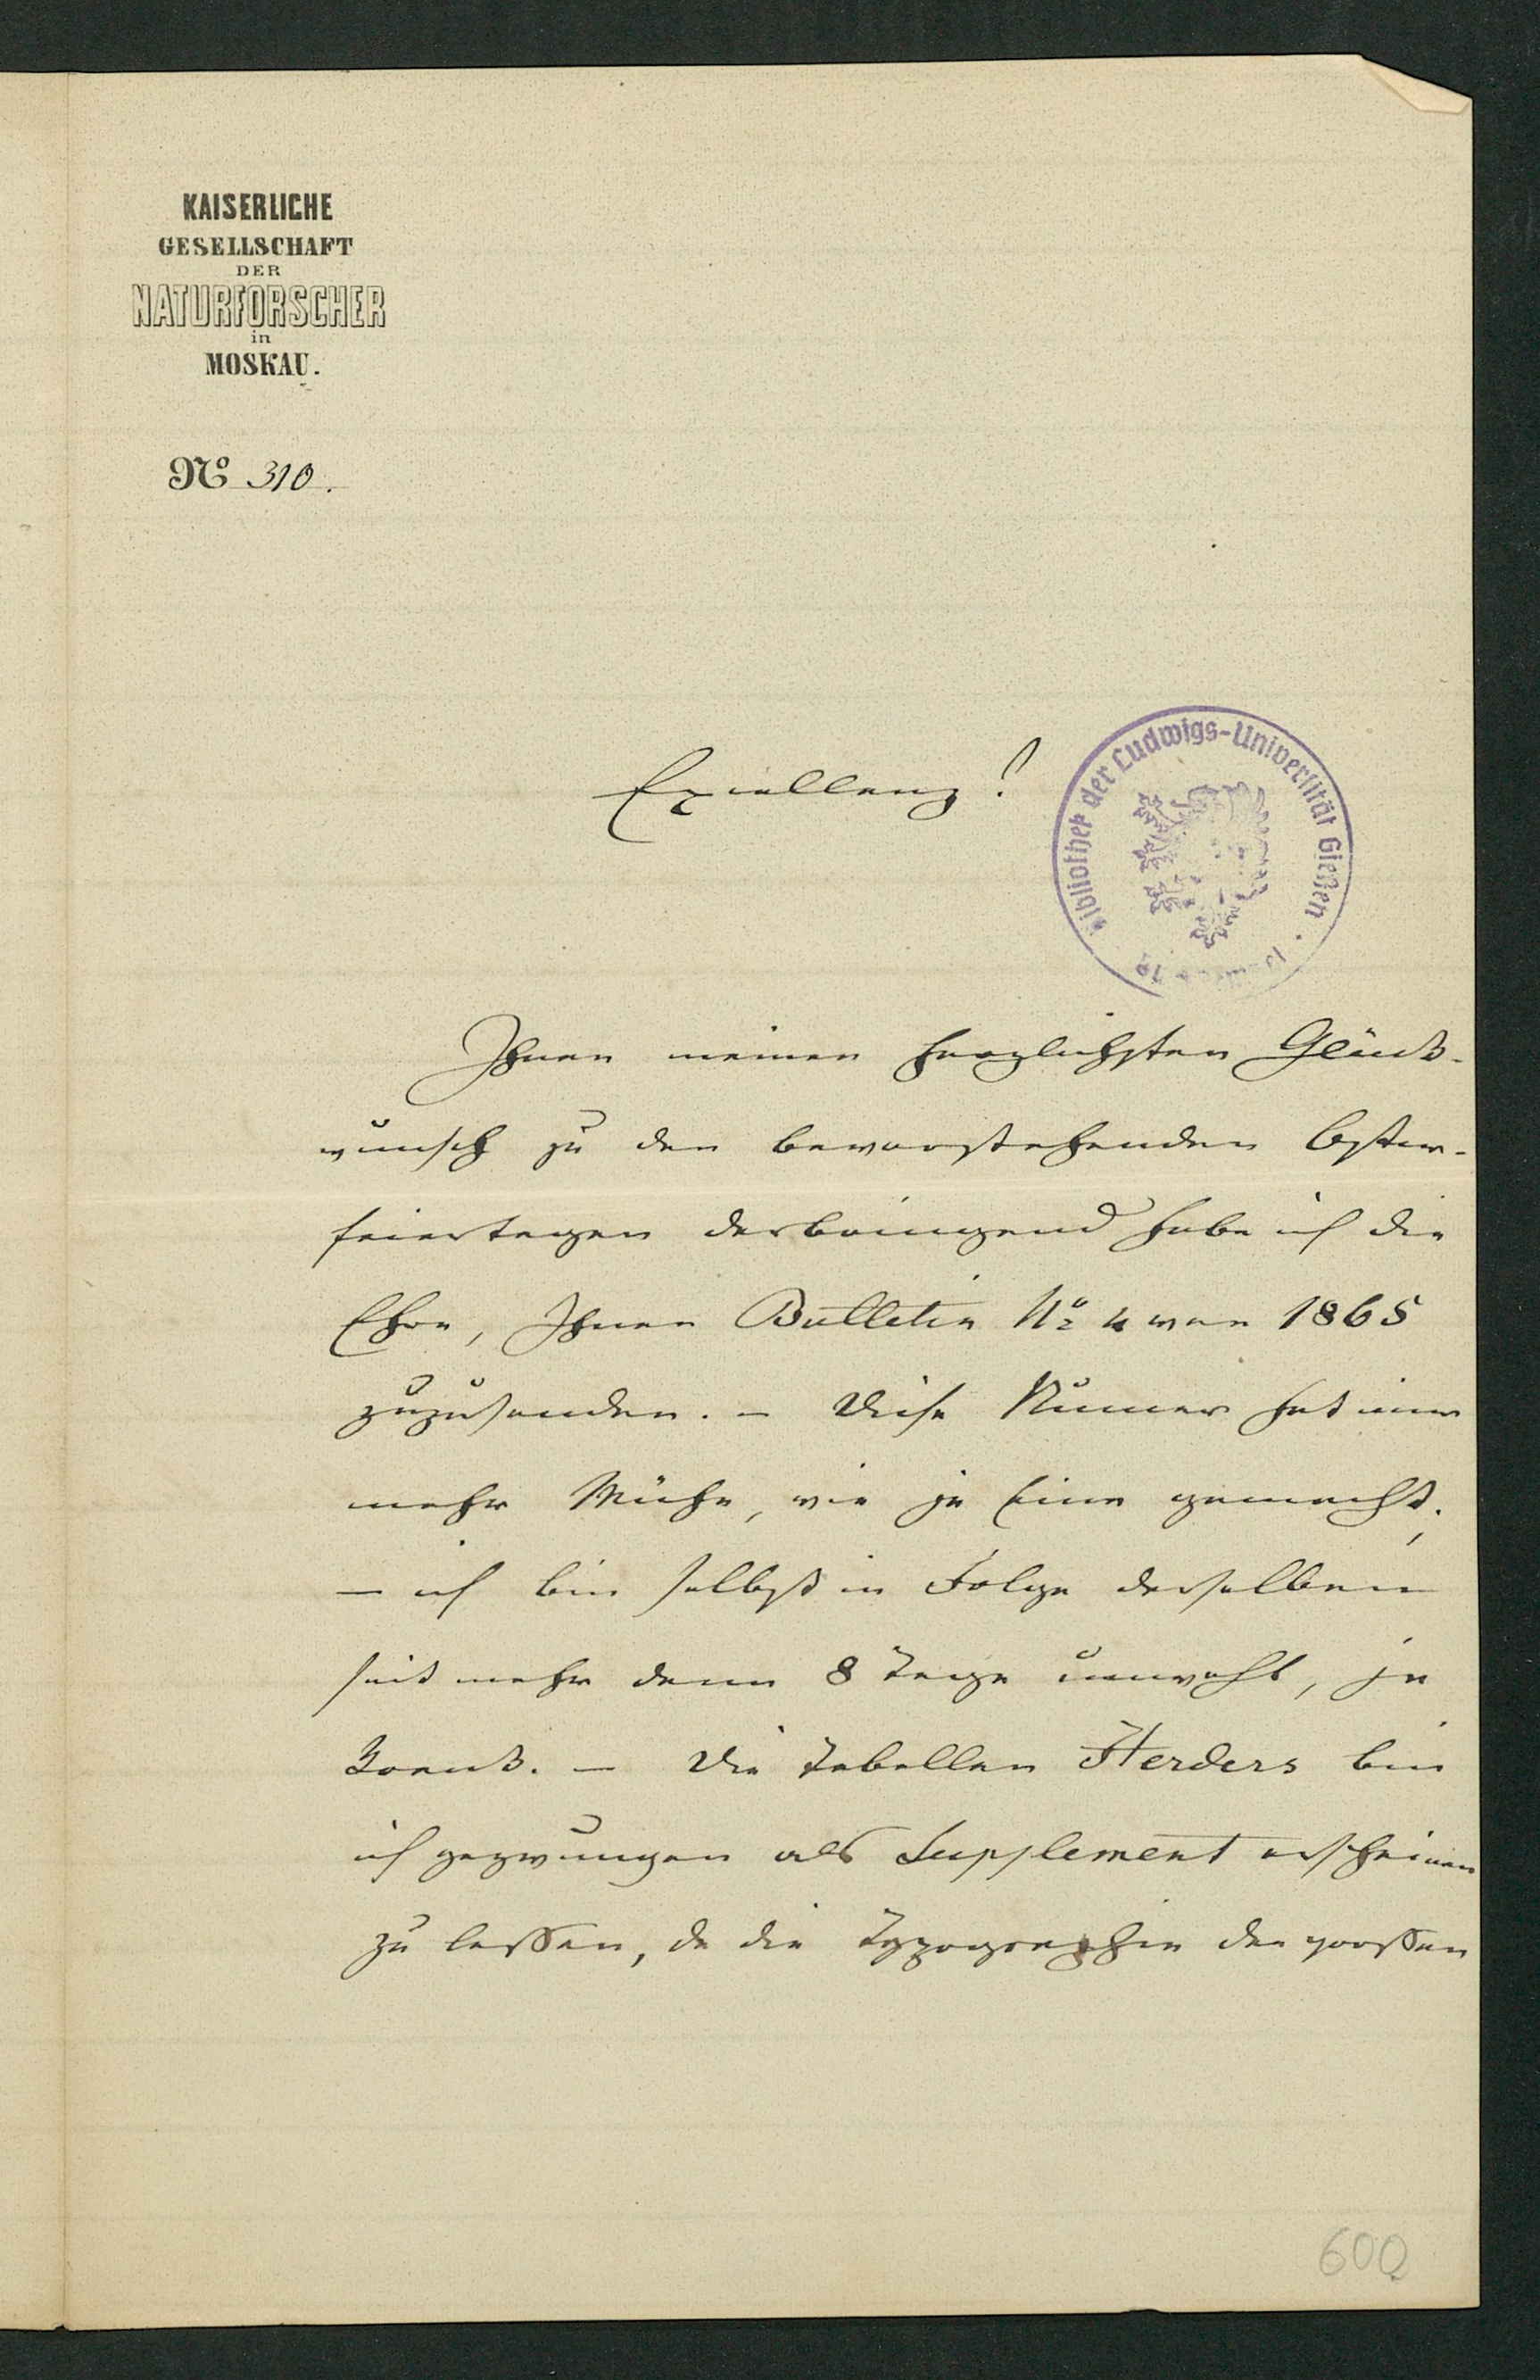 KAISERLICHE
GESELLSCHAFT
DER
NATURFORSCHER
in
MOSKAU.
No 310.
Excellenz!
Bibliothek der Ludwigs-Universität Gießen
Ihnen meinen herzlichsten Glück-
wunsch zu den bevorstehenden Oster-
feiertagen darbringend habe ich die
Ehre, Ihnen Bulletin No 4 von 1865
zuzusenden. – Diese Numer hat mir
mehr Mühe, wie je Eine gemacht,
– ich bin selbst in Folge derselben
seit mehr denn 8 Tage unwohl, ja
krank. – Die Tabellen Herders bin
ich gezwungen als Supplement erscheinen
zu lassen, da die Typographie der grossen
600